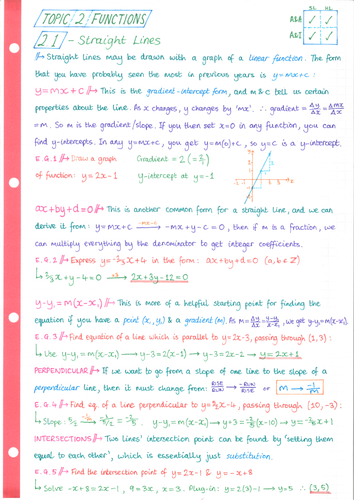 TOPIC 2 FUNCTIONS
SL HL
A&A ✓ ✓
A&I ✓ ✓
2.1 - Straight Lines
Straight lines may be drawn with a graph of a linear function. The form
that you have probably seen the most in previous years is y=mx+c:
y=mx+c → This is the gradient-intercept form, and m & c tell us certain
properties about the line. As x changes, y changes by 'mx'. ∴ gradient = Δy/Δx = Δmx/Δx
=m. So m is the gradient/slope. If you then set x=0 in any function, you can
find y-intercepts. In any y=mx+c, you get y=m(0)+c, so y=c is a y-intercept.
E.G.1 → Draw a graph Gradient = 2 (=2/1)
of function: y=2x-1 y-intercept at y=-1
ax+by+d=0 → This is another common form for a straight line, and we can
derive it from: y=mx+c → -mx+y-c=0, then if m is a fraction, we
can multiply everything by the denominator to get integer coefficients.
E.G.2 → Express y=-2/3x+4 in the form: ax+by+d=0 (a,b∈ℤ)
↳ 2/3x+y-4=0 ×3→ 2x+3y-12=0
y-y₁=m(x-x₁) → This is more of a helpful starting point for finding the
equation if you have a point (x₁,y₁) & a gradient (m). As m=Δy/Δx=y-y₁/x-x₁, we get y-y₁=m(x-x₁).
E.G.3 → Find equation of a line which is parallel to y=2x-3, passing through (1,3):
↳ Use y-y₁=m(x-x₁) → y-3=2(x-1) → y-3=2x-2 → y=2x+1
PERPENDICULAR → If we want to go from a slope of one line to the slope of a
perpendicular line, then it must change from: RISE/RUN → -RUN/RISE or m → -1/m
E.G.4 → Find eq. of a line perpendicular to y=5/2x-4, passing through (10,-3):
INTERSECTIONS → Two lines' intersection point can be found by 'setting them
equal to each other', which is essentially just substitution.
E.G.5 → Find the intersection point of y=2x-1 & y=-x+8
↳ Solve -x+8=2x-1, 9=3x, x=3. Plug-in: y=2(3)-1 → y=5 ∴ (3,5)